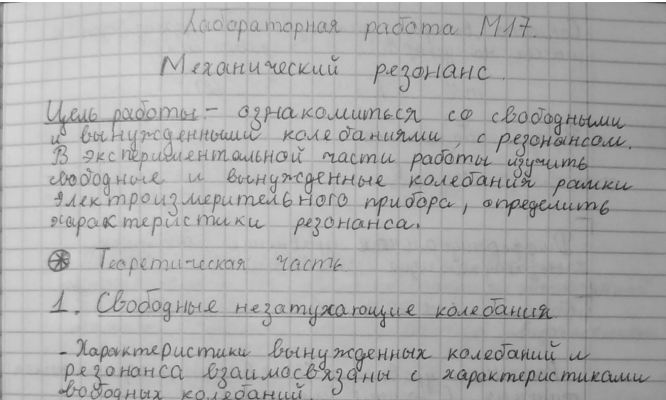 Лабораторная работа М17.
Механический резонанс.
Цель работы - ознакомиться со свободными
и вынужденными колебаниями, с резонансом.
В экспериментальной части работы изучить
свободные и вынужденные колебания рамки
электроизмерительного прибора, определить
характеристики резонанса.
Теоретическая часть
1. Свободные незатухающие колебания
- Характеристики вынужденных колебаний и
резонанса взаимосвязаны с характеристиками
свободных колебаний.